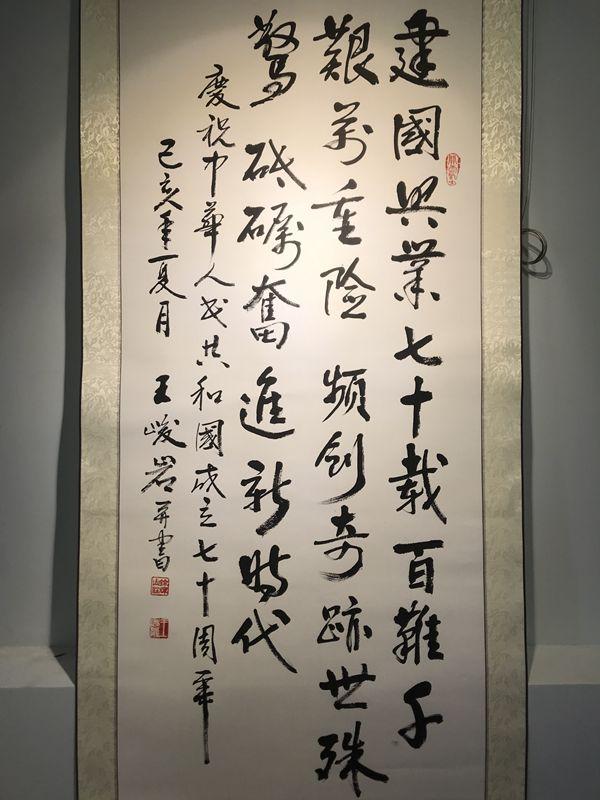 建國興業七十載百難千
艱萬重險頻創奇跡世殊
驚砥礪奮進新時代
慶祝中華人民共和國成立七十周年
己亥年夏月 王峻岩并書